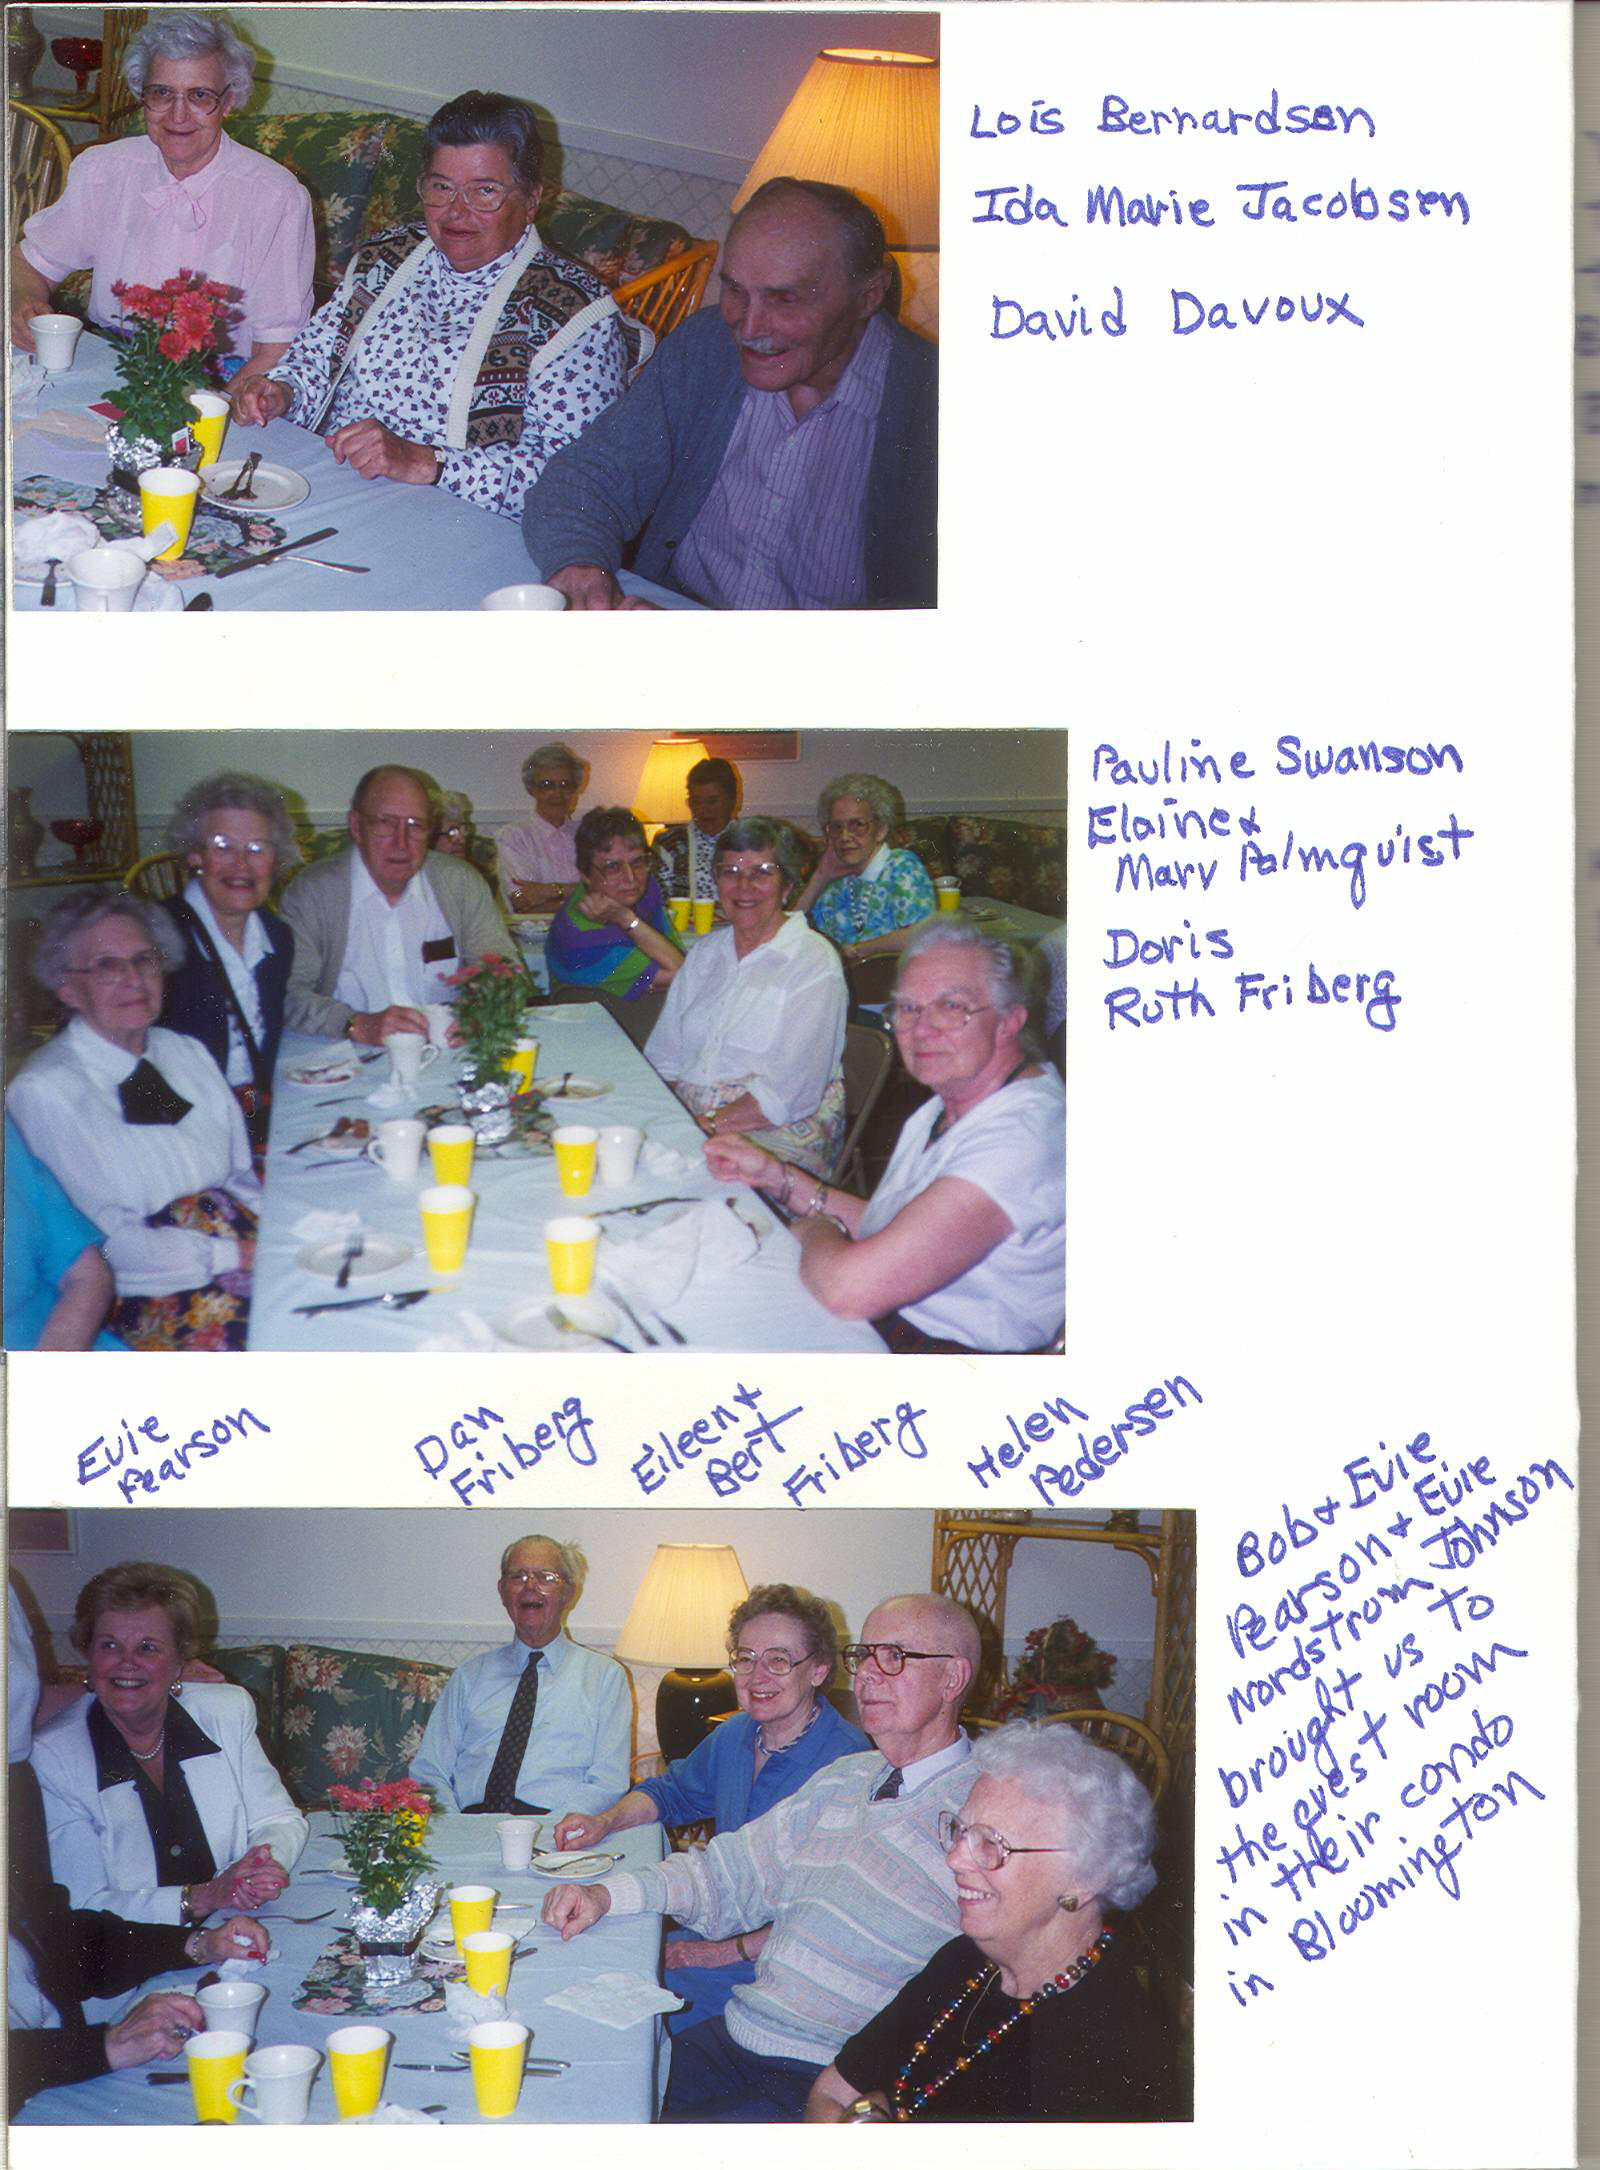 Lois Bernardsen
Ida Marie Jacobsen
David Davoux
Pauline Swanson
Elaine &
Marv Palmquist
Doris
Ruth Friberg
Evie
Pearson
Dan
Friberg
Eileen &
Bert
Friberg
Helen
Pedersen
Bob & Evie
Pearson & Evie
Nordstrom Johnson
brought us to
the guest room
in their condo
in Bloomington